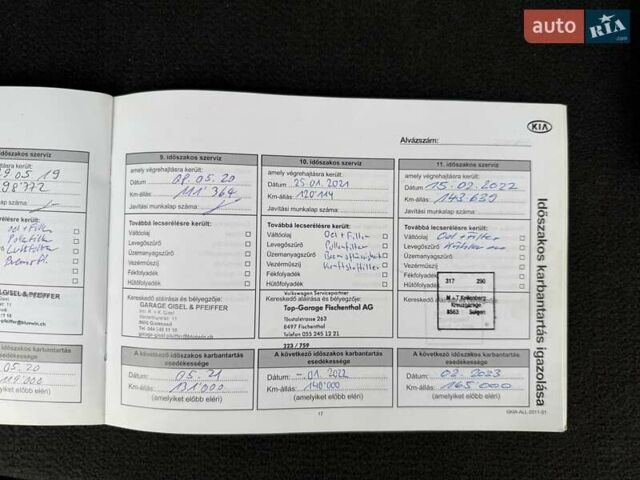 auto RIA.com
KIA
Alvázszám:
29 05 19
98'772
száma:
cserélésre került:
Oel + Filter
Pollenfilter
Luftfilter
GISEL & PFEIFFER
karbantartás
05.20
119'000
előbb eléri)
9. időszakos szerviz
amely végrehajtásra került:
Dátum 08.05.20
Km-állás: 111'364
Javítási munkalap száma:
Továbbá lecserélésre került:
Váltóolaj
Levegőszűrő
Üzemanyagszűrő
Vezérműszíj
Fékfolyadék
Hűtőfolyadék
Kereskedő aláírása és bélyegzője:
GARAGE GISEL & PFEIFFER
A következő időszakos karbantartás
esedékessége
Dátum: 05.21
Km-állás: 131'000
(amelyiket előbb eléri)
10. időszakos szerviz
amely végrehajtásra került:
Dátum 25.01.2021
Km-állás: 120'114
Javítási munkalap száma:
Továbbá lecserélésre került:
Váltóolaj Oel + Filter
Levegőszűrő Pollenfilter
Üzemanyagszűrő Bremsflüssigkeit
Vezérműszíj Kraftstofffilter
Fékfolyadék
Hűtőfolyadék
Kereskedő aláírása és bélyegzője:
Volkswagen Servicepartner
Top-Garage Fischenthal AG
Tösstalstrasse 263
8497 Fischenthal
Telefon 055 245 12 21
223 / 759
A következő időszakos karbantartás
esedékessége
Dátum: -.01.2022
Km-állás: 140'000
(amelyiket előbb eléri)
11. időszakos szerviz
amely végrehajtásra került:
Dátum 15.02.2022
Km-állás: 143.639
Javítási munkalap száma:
Továbbá lecserélésre került:
Váltóolaj Oel + Filter
Levegőszűrő
Üzemanyagszűrő
Vezérműszíj
Fékfolyadék
Hűtőfolyadék
Kereskedő aláírása és bélyegzője:
317 290
M + T Kellenberg
Kreuzgarage
A következő időszakos karbantartás
esedékessége
Dátum: 02.2023
Km-állás: 165.000
(amelyiket előbb eléri)
Időszakos karbantartás igazolása
17
GKIA-ALL-2011-01